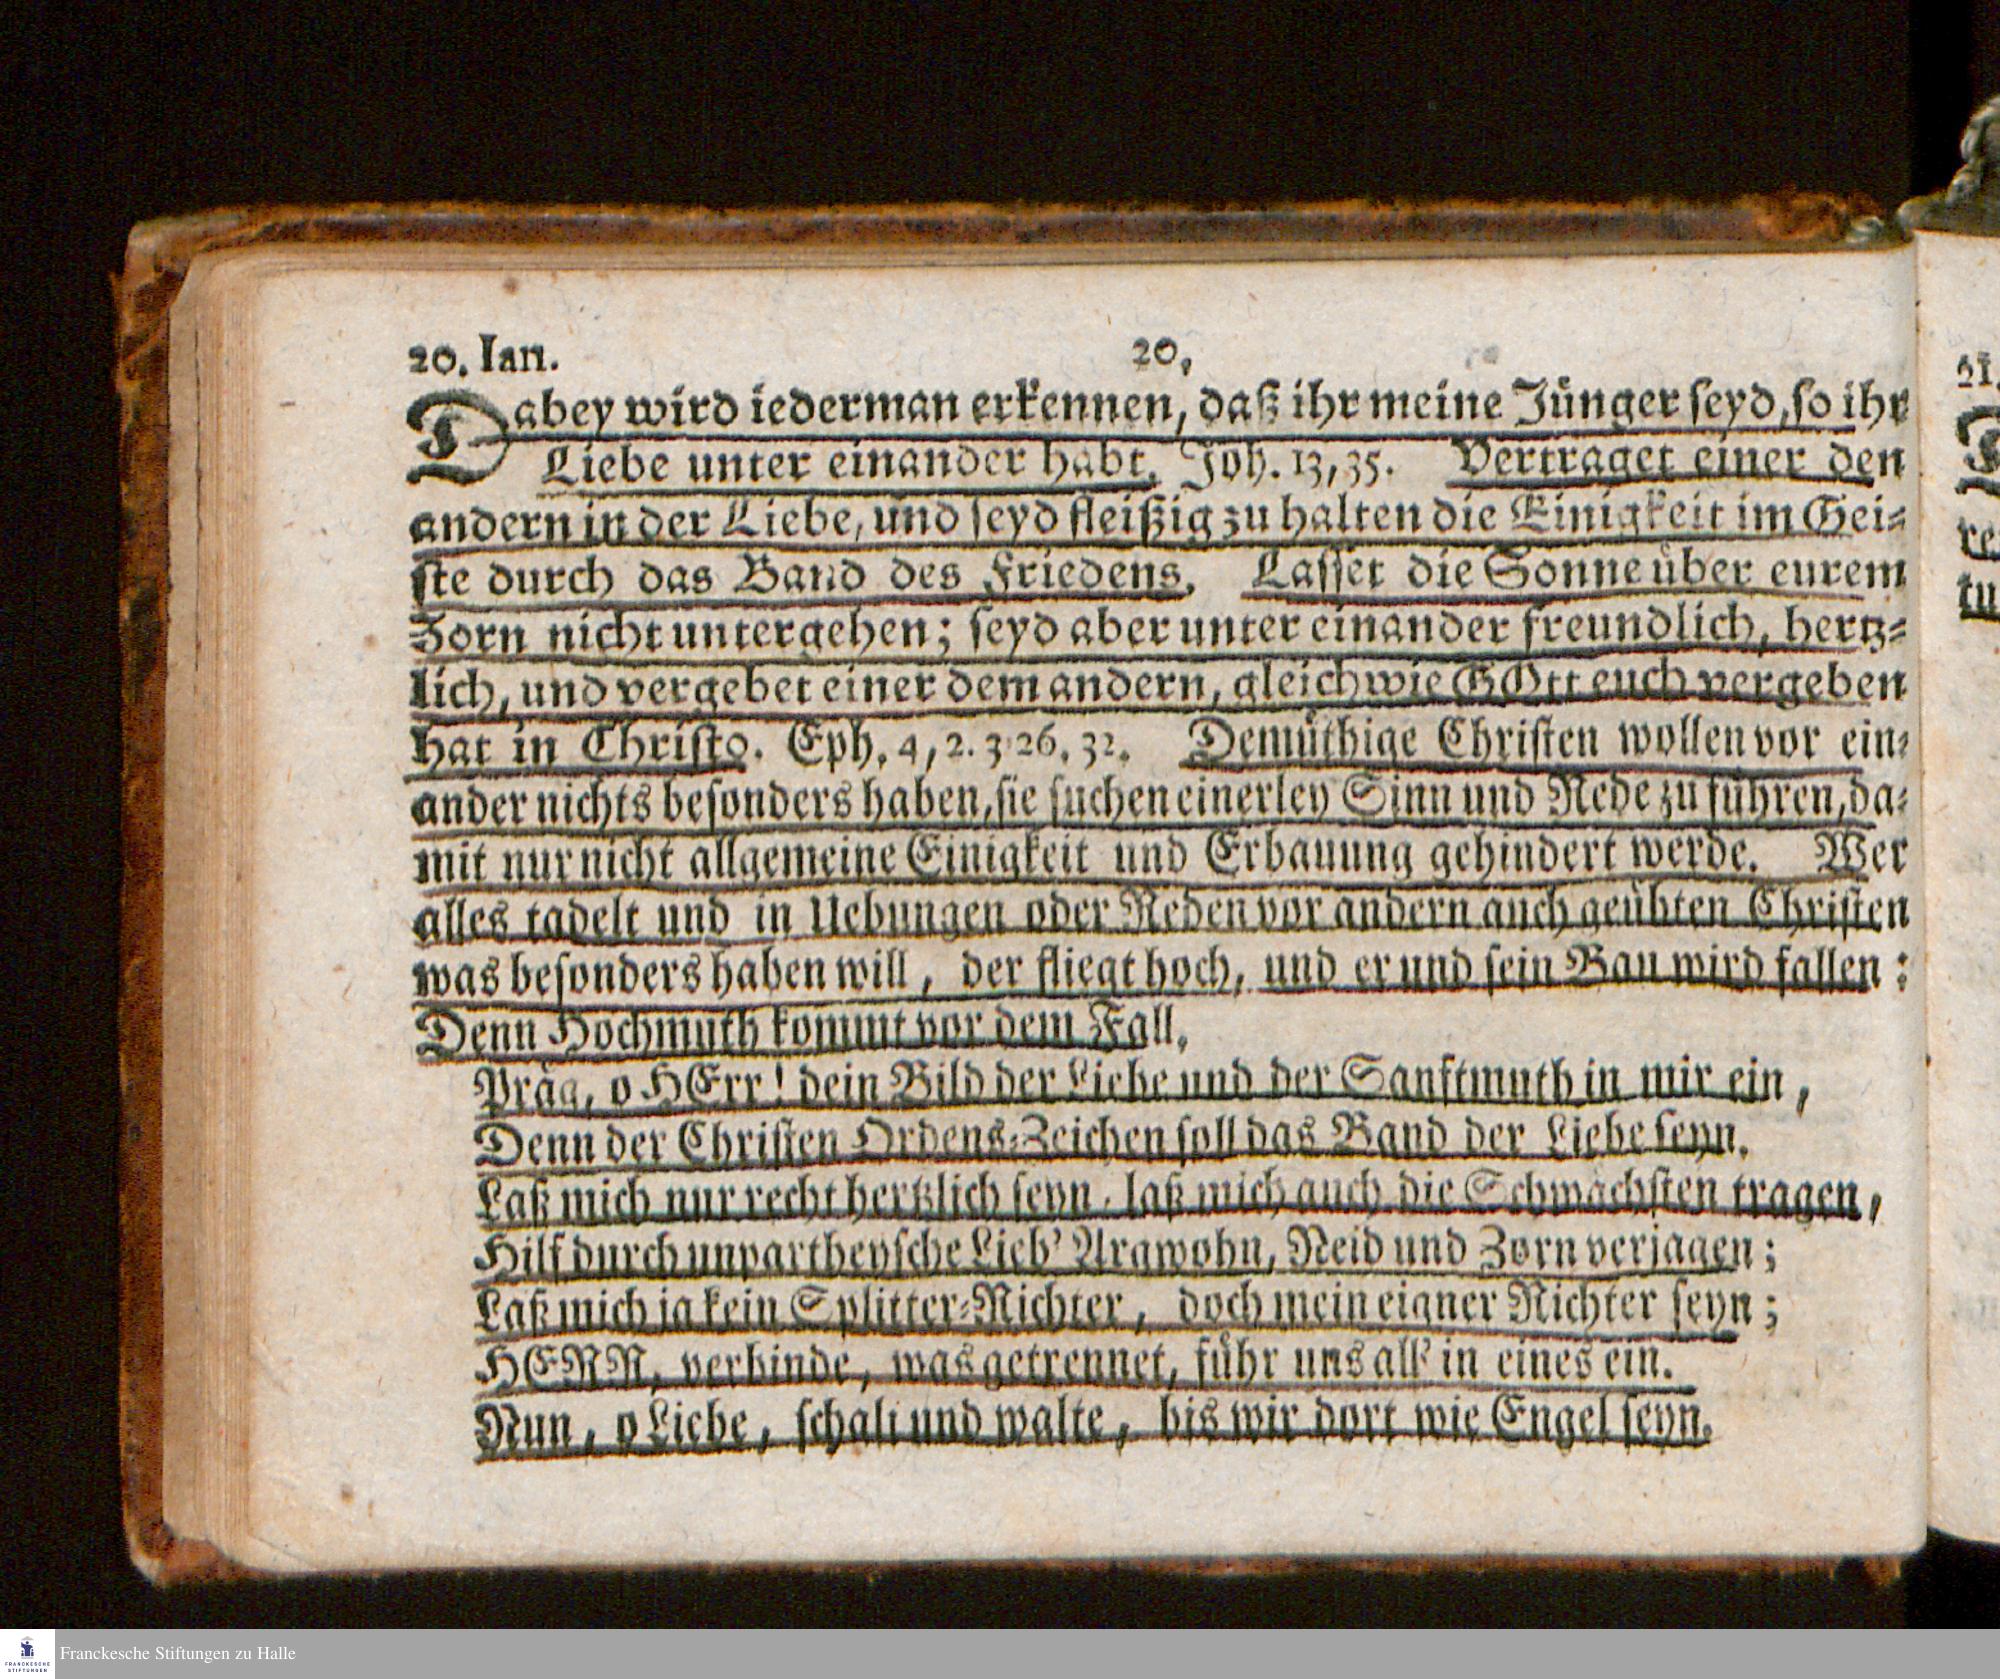 20. Ian. 20.
Dabey wird iederman erkennen, daß ihr meine Jünger seyd, so ihr
Liebe unter einander habt. Joh. 13, 35. Vertraget einer den
andern in der Liebe, und seyd fleißig zu halten die Einigkeit im Gei=
ste durch das Band des Friedens. Lasset die Sonne über eurem
Zorn nicht untergehen; seyd aber unter einander freundlich, hertz=
lich, und vergebet einer dem andern, gleichwie GOtt euch vergeben
hat in Christo. Eph. 4, 2. 3. 26. 32. Demüthige Christen wollen vor ein=
ander nichts besonders haben, sie suchen einerley Sinn und Rede zu führen, da=
mit nur nicht allgemeine Einigkeit und Erbauung gehindert werde. Wer
alles tadelt und in Uebungen oder Reden vor andern auch geübten Christen
was besonders haben will, der fliegt hoch, und er und sein Bau wird fallen:
Denn Hochmuth kommt vor dem Fall.
Präg, o HErr! dein Bild der Liebe und der Sanftmuth in mir ein,
Denn der Christen Ordens=Zeichen soll das Band der Liebe seyn.
Laß mich nur recht hertzlich seyn, laß mich auch die Schwächsten tragen,
Hilf durch unpartheysche Lieb' Argwohn, Neid und Zorn verjagen;
Laß mich ja kein Splitter=Richter, doch mein eigner Richter seyn;
HERR, verbinde, was getrennet, führ uns all' in eines ein.
Nun, o Liebe, schalt und walte, bis wir dort wie Engel seyn.
21.
re
tu
FRANCKESCHE
STIFTUNGEN
Franckesche Stiftungen zu Halle